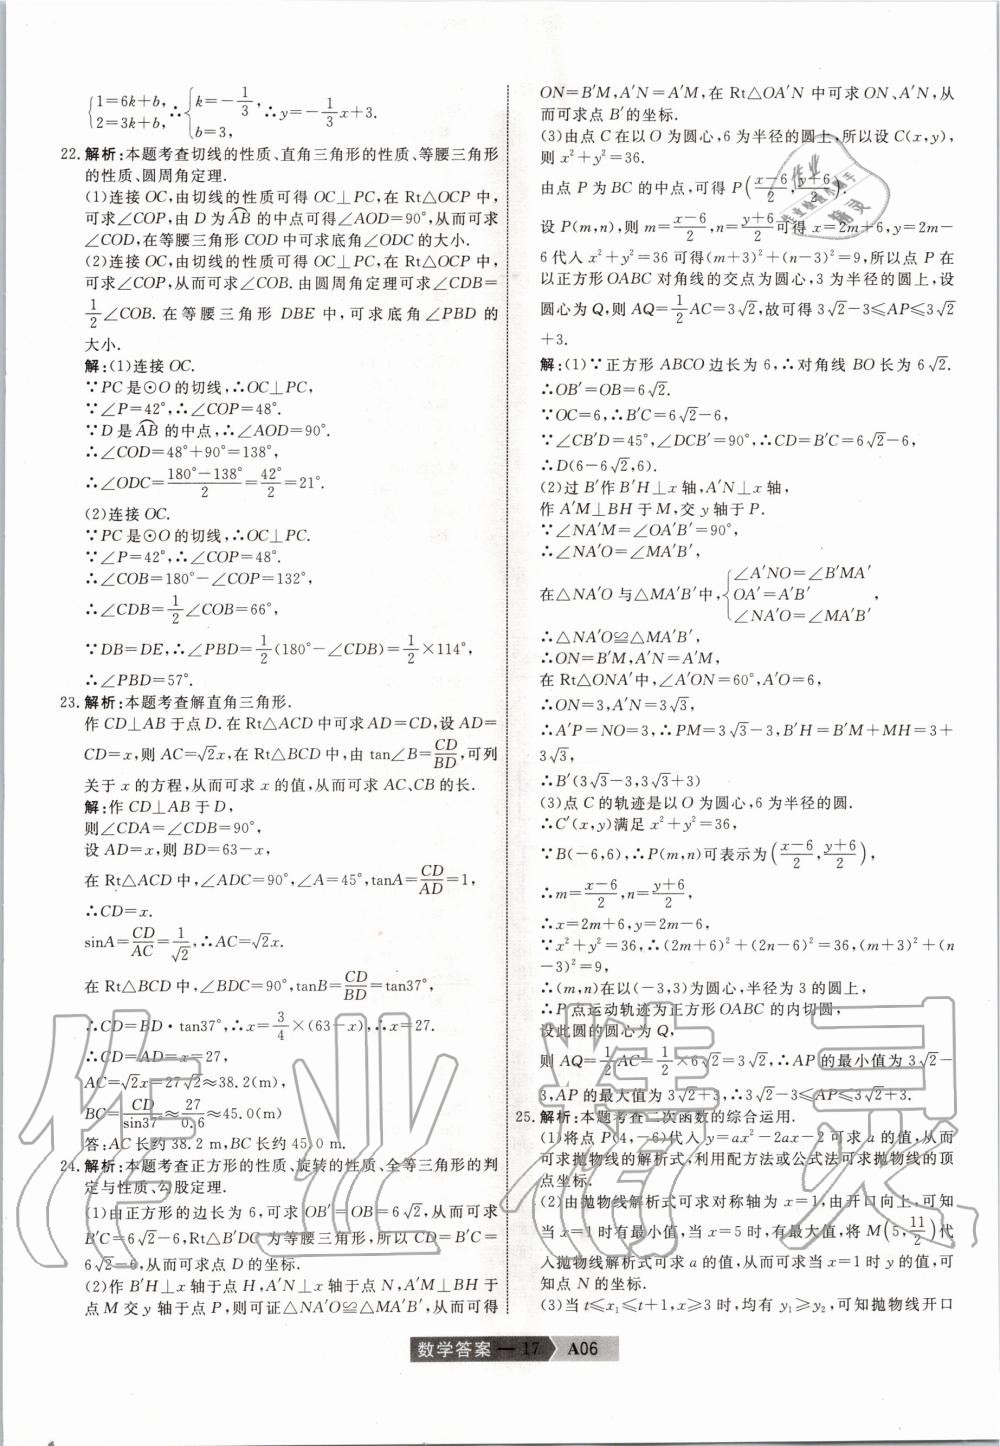 {1=6k+b, 2=3k+b, ∴{k=-1/3, b=3, ∴y=-1/3x+3.
22. 解析:本题考查切线的性质、直角三角形的性质、等腰三角形
的性质、圆周角定理.
(1)连接 OC,由切线的性质可得 OC⊥PC,在 Rt△OCP 中,
可求∠COP,由 D 为AB的中点可得∠AOD=90°,从而可求
∠COD,在等腰三角形 COD 中可求底角∠ODC 的大小.
(2)连接 OC,由切线的性质可得 OC⊥PC,在 Rt△OCP 中,
可求∠COP,从而可求∠COB.由圆周角定理可求∠CDB=
1/2∠COB.在等腰三角形 DBE 中,可求底角∠PBD 的
大小.
解:(1)连接 OC.
∵PC 是⊙O 的切线,∴OC⊥PC,
∵∠P=42°,∴∠COP=48°.
∵D 是AB的中点,∴∠AOD=90°.
∴∠COD=48°+90°=138°,
∴∠ODC=(180°-138°)/2=42°/2=21°.
(2)连接 OC.
∵PC 是⊙O 的切线,∴OC⊥PC.
∵∠P=42°,∴∠COP=48°.
∴∠COB=180°-∠COP=132°,
∴∠CDB=1/2∠COB=66°,
∵DB=DE,∴∠PBD=1/2(180°-∠CDB)=1/2×114°,
∴∠PBD=57°.
23. 解析:本题考查解直角三角形.
作 CD⊥AB 于点 D.在 Rt△ACD 中可求 AD=CD,设 AD=
CD=x,则 AC=√2x,在 Rt△BCD 中,由 tan∠B=CD/BD,可列
关于 x 的方程,从而可求 x 的值,从而可求 AC、CB 的长.
解:作 CD⊥AB 于 D,
则∠CDA=∠CDB=90°,
设 AD=x,则 BD=63-x,
在 Rt△ACD 中,∠ADC=90°,∠A=45°,tanA=CD/AD=1,
∴CD=x.
sinA=CD/AC=1/√2,∴AC=√2x.
在 Rt△BCD 中,∠BDC=90°,tanB=CD/BD=tan37°,
∴CD=BD·tan37°,∴x=3/4×(63-x),∴x=27.
∴CD=AD=x=27,
AC=√2x=27√2≈38.2(m),
BC=CD/sin37°≈27/0.6≈45.0(m)
答:AC 长约 38.2 m,BC 长约 45.0 m.
24. 解析:本题考查正方形的性质、旋转的性质、全等三角形的判
定与性质、勾股定理.
(1)由正方形的边长为 6,可求 OB′=OB=6√2,从而可求
B′C=6√2-6,Rt△B′DC 为等腰三角形,所以 CD=B′C=
6√2-6,从而可求点 D 的坐标.
(2)作 B′H⊥x 轴于点 H,A′N⊥x 轴于点 N,A′M⊥BH 于
点 M 交 y 轴于点 P,则可证△NA′O≌△MA′B′,从而可得
ON=B′M,A′N=A′M,在 Rt△OA′N 中可求 ON、A′N,从
而可求点 B′的坐标.
(3)由点 C 在以 O 为圆心,6 为半径的圆上,所以设 C(x,y),
则 x²+y²=36.
由点 P 为 BC 的中点,可得 P((x-6)/2,(y+6)/2),
设 P(m,n),则 m=(x-6)/2,n=(y+6)/2可得 x=2m+6,y=2m-
6 代入 x²+y²=36 可得(m+3)²+(n-3)²=9,所以点 P 在
以正方形 OABC 对角线的交点为圆心,3 为半径的圆上,设
圆心为 Q,则 AQ=1/2AC=3√2,故可得 3√2-3≤AP≤3√2
+3.
解:(1)∵正方形 ABCO 边长为 6,∴对角线 BO 长为 6√2.
∴OB′=OB=6√2.
∵OC=6,∴B′C=6√2-6,
∵∠CB′D=45°,∠DCB′=90°,∴CD=B′C=6√2-6,
∴D(6-6√2,6).
(2)过 B′作 B′H⊥x 轴,A′N⊥x 轴,
作 A′M⊥BH 于 M,交 y 轴于 P.
∵∠NA′M=∠OA′B′=90°,
∴∠NA′O=∠MA′B′,
在△NA′O 与△MA′B′中,{∠A′NO=∠B′MA′ OA′=A′B′ ∠NA′O=∠MA′B′,
∴△NA′O≌△MA′B′,
∴ON=B′M,A′N=A′M,
在 Rt△ONA′中,∠A′ON=60°,A′O=6,
∴ON=3,A′N=3√3,
∴A′P=NO=3,∴PM=3√3-3,B′H=B′M+MH=3+
3√3,
∴B′(3√3-3,3√3+3)
(3)点 C 的轨迹是以 O 为圆心,6 为半径的圆.
∴C′(x,y)满足 x²+y²=36,
∵B(-6,6),∴P(m,n)可表示为((x-6)/2,(y+6)/2),
∴m=(x-6)/2,n=(y+6)/2,
∴x=2m+6,y=2m-6.
∵x²+y²=36,∴(2m+6)²+(2n-6)²=36,(m+3)²+(n
-3)²=9,
∴(m,n)在以(-3,3)为圆心,半径为 3 的圆上,
∴P 点运动轨迹为正方形 OABC 的内切圆,
设此圆的圆心为 Q,
则 AQ=1/2AC=1/2×6√2=3√2,∴AP 的最小值为 3√2-
3,AP 的最大值为 3√2+3,∴3√2-3≤AP≤3√2+3.
25. 解析:本题考查二次函数的综合运用.
(1)将点 P(4,-6)代入 y=ax²-2ax-2 可求 a 的值,从而
可求抛物线的解析式,利用配方法或公式法可求抛物线的顶
点坐标.
(2)由抛物线解析式可求对称轴为 x=1,由开口向上,可知
当 x=1 时有最小值,当 x=5 时,有最大值,将 M(5,11/2)代
入抛物线解析式可求 a 的值,从而可求当 x=1 时 y 的值,可
知点 N 的坐标.
(3)当 t≤x₁≤t+1,x≥3 时,均有 y₁≥y₂,可知抛物线开口
数学答案 — 17 A06
作业精灵